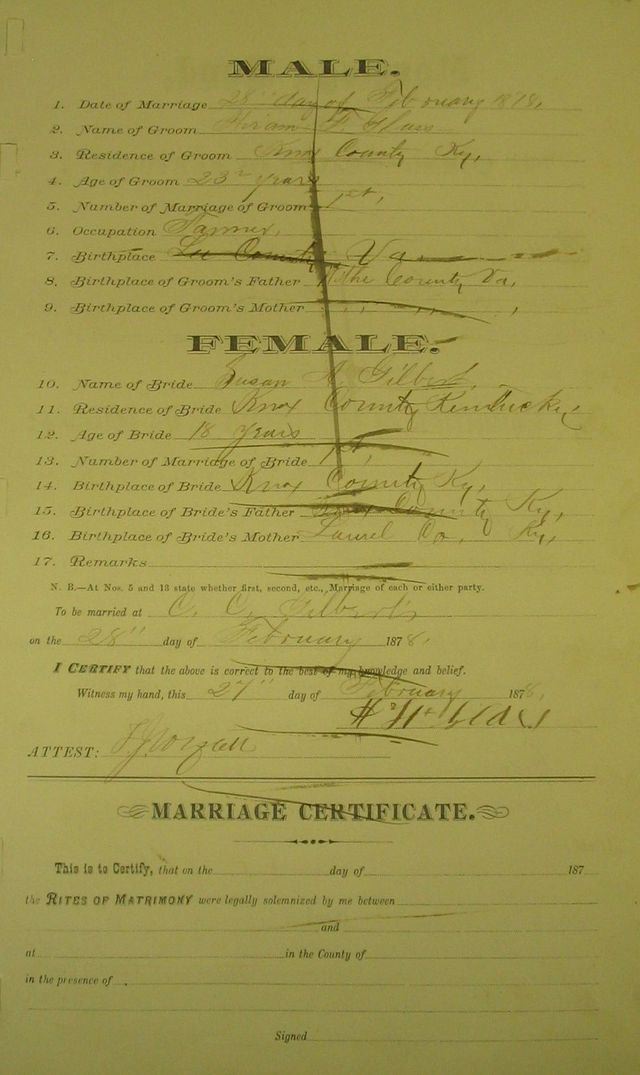 MALE.
1. Date of Marriage 28" day of February 1878,
2. Name of Groom Hiram
3. Residence of Groom Knox County Ky,
4. Age of Groom 23 years
5. Number of Marriage of Groom 1st,
6. Occupation Farmer,
7. Birthplace Lee County Va
8. Birthplace of Groom's Father County Va,
9. Birthplace of Groom's Mother " " " "
FEMALE.
10. Name of Bride Susan A. Gilbert,
11. Residence of Bride Knox County Kentucky
12. Age of Bride 18 years
13. Number of Marriage of Bride 1st,
14. Birthplace of Bride Knox County Ky,
15. Birthplace of Bride's Father Knox County Ky,
16. Birthplace of Bride's Mother Laurel Co, Ky,
17. Remarks
N. B.—At Nos. 5 and 13 state whether first, second, etc., Marriage of each or either party.
To be married at C. C. Gilbert's
on the 28" day of February 1878,
I CERTIFY that the above is correct to the best of my knowledge and belief.
Witness my hand, this 27" day of February 1878,
ATTEST:
MARRIAGE CERTIFICATE.
This is to Certify, that on the day of 187
the RITES OF MATRIMONY were legally solemnized by me between
and
at in the County of
in the presence of
Signed